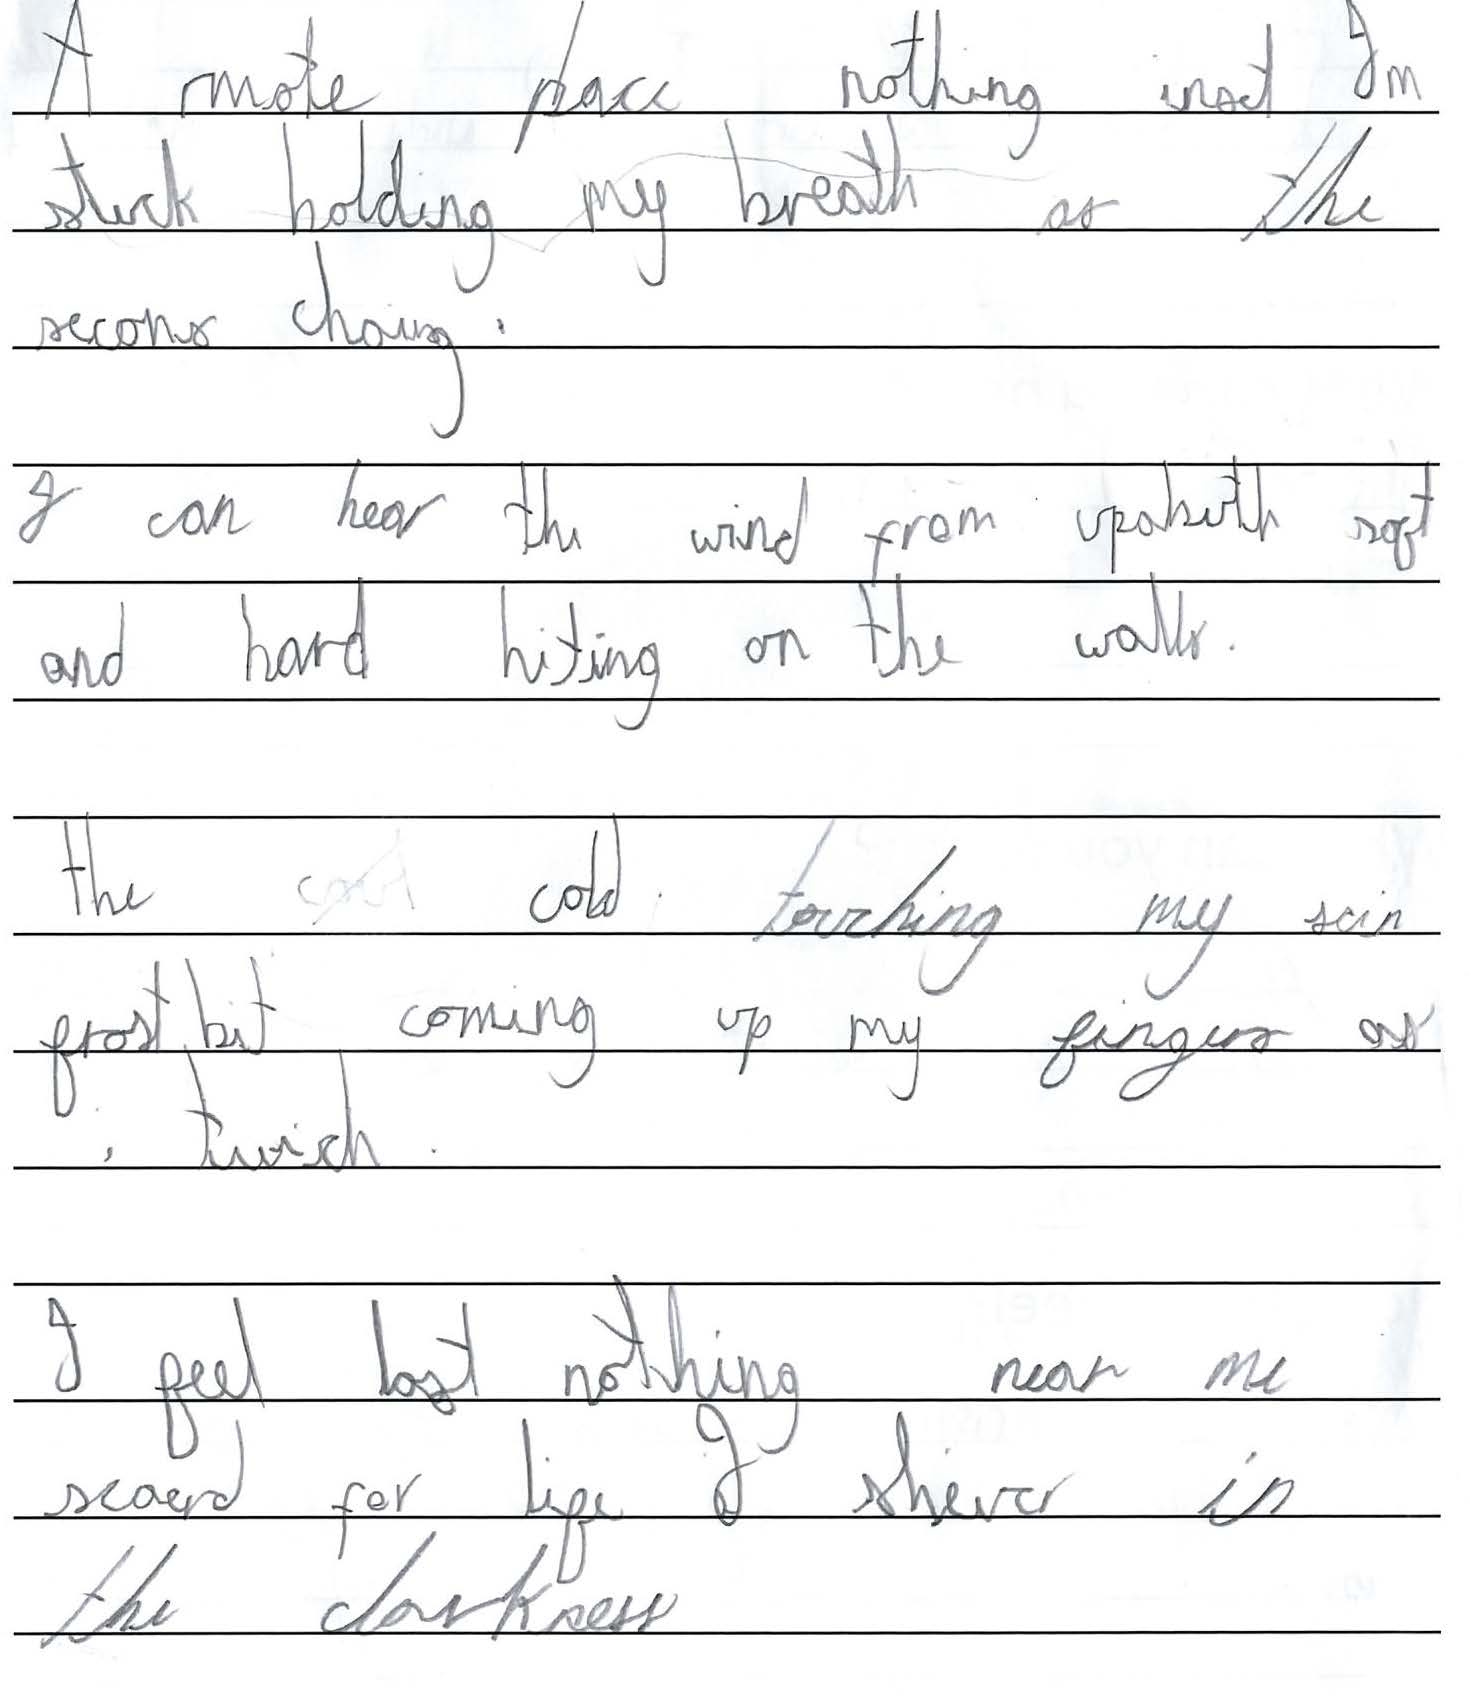 A rmote place nothing insct I'm
stuck holding my breath as the
secons
I can hear the wind from soft
and hard hiting on the walls.
the cold. touching my scin
frost bit coming up my fingers as
i twich.
I feel lost nothing near me
scaerd for life I shiver in
the darkness